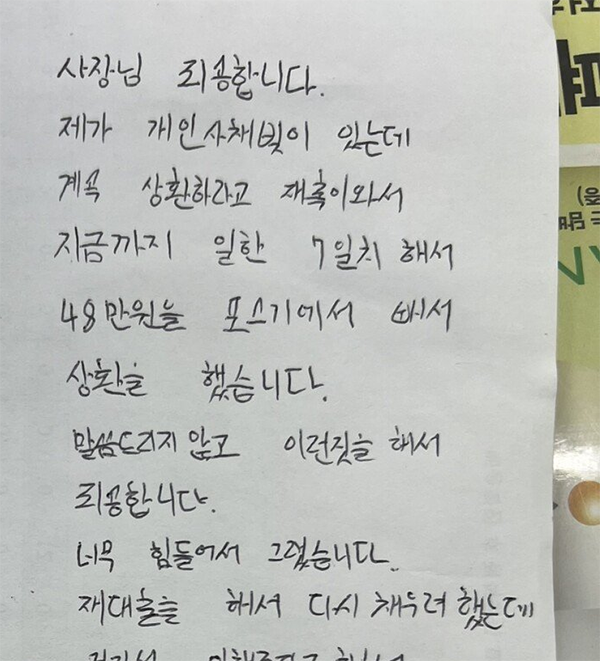 사장님 죄송합니다.
제가 개인사채빚이 있는데
계속 상환하라고 재촉이와서
지금까지 일한 7일치 해서
48만원을 포스기에서 빼서
상환을 했습니다.
말씀드리지 않고 이런짓을 해서
죄송합니다.
너무 힘들어서 그랬습니다.
재대출을 해서 다시 채우려 했는데